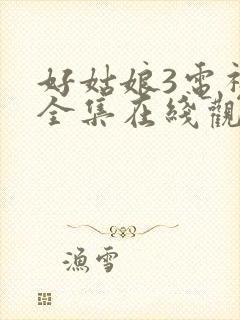 好姑娘3電視
全集在綫觀
漁雪